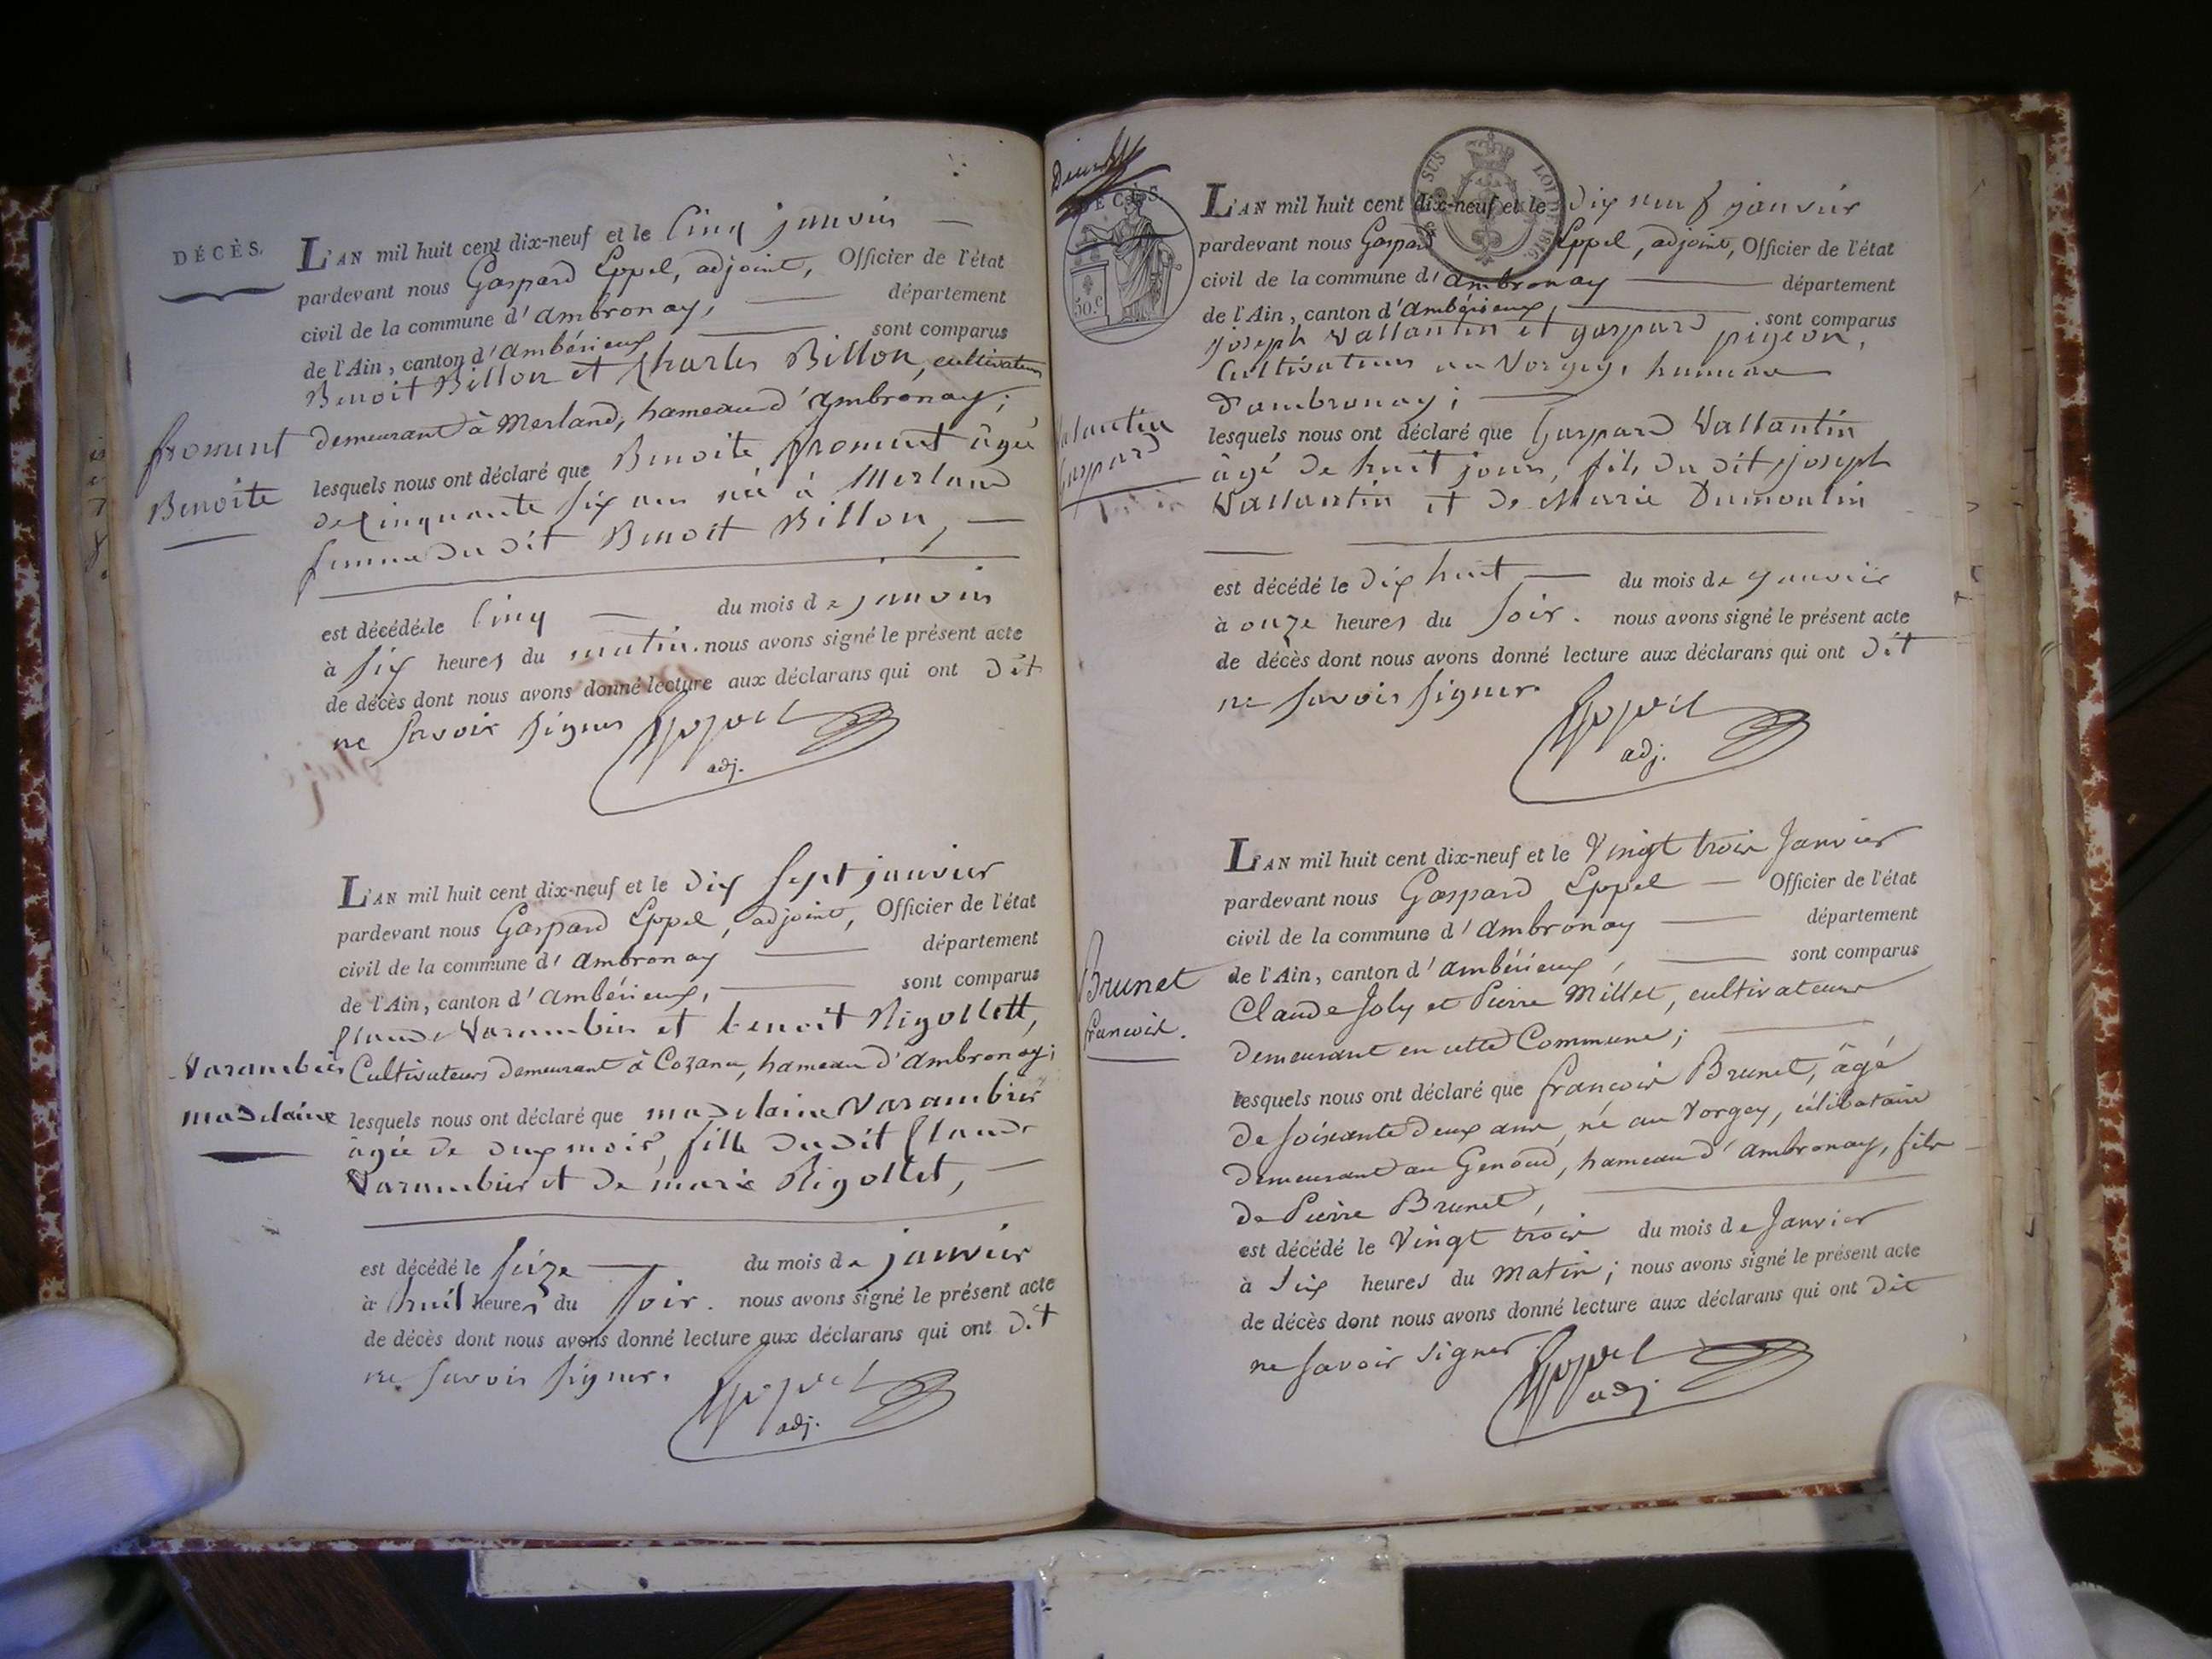 DÉCÈS.
L'AN mil huit cent dix-neuf et le Cinq janvier
pardevant nous Gaspard Eppel, adjoint, Officier de l'état
civil de la commune d'ambronay, département
de l'Ain, canton d'ambérieux sont comparus
Benoit Billon et Charles Billon, cultivateurs
demeurant à Merland, hameau d'ambronay;
froment
Benoite
lesquels nous ont déclaré que Benoite froment âgée
de Cinquante six ans née à Merland
femme du dit Benoit Billon,
est décédé le Cinq du mois de janvier
à six heures du matin. nous avons signé le présent acte
de décès dont nous avons donné lecture aux déclarans qui ont dit
ne savoir signer Eppel
adj.
L'AN mil huit cent dix-neuf et le dix sept janvier
pardevant nous Gaspard Eppel, adjoint, Officier de l'état
civil de la commune d'ambronay département
de l'Ain, canton d'ambérieux, sont comparus
Claude Varambier et benoit Rigollett,
Cultivateurs demeurant à Cozance, hameau d'ambronay;
Varambier
madelaine
lesquels nous ont déclaré que madelaine Varambier
âgée de deux mois, fille du dit Claude
Varambier et de marie Rigollet,
est décédé le seize du mois de janvier
à huit heures du soir. nous avons signé le présent acte
de décès dont nous avons donné lecture aux déclarans qui ont dit
ne savoir signer.
Eppel
adj.
DÉCÈS
50.c
SUS LOI DE 1816.
L'AN mil huit cent dix-neuf et le dix neuf janvier
pardevant nous Gaspard Eppel, adjoint, Officier de l'état
civil de la commune d'ambronay département
de l'Ain, canton d'ambérieux, sont comparus
joseph Vallantin et gaspard pigeon,
Cultivateurs au Vorgey, hameau
d'ambronay;
Valantin
Gaspard
lesquels nous ont déclaré que Gaspard Vallantin
âgé de huit jours, fils du dit joseph
Vallantin et de Marie Dumoulin
est décédé le dix huit du mois de janvier
à onze heures du soir. nous avons signé le présent acte
de décès dont nous avons donné lecture aux déclarans qui ont dit
ne savoir signer.
Eppel
adj.
L'AN mil huit cent dix-neuf et le Vingt trois Janvier
pardevant nous Gaspard Eppel Officier de l'état
civil de la commune d'ambronay département
de l'Ain, canton d'ambérieux, sont comparus
Claude Joly et Pierre Millet, cultivateurs
demeurant en cette Commune;
Brunet
francois.
lesquels nous ont déclaré que francois Brunet, âgé
de soixante deux ans, né au Vorgey, célibataire
demeurant au Genoud, hameau d'ambronay, fils
de Pierre Brunet,
est décédé le Vingt trois du mois de Janvier
à six heures du Matin; nous avons signé le présent acte
de décès dont nous avons donné lecture aux déclarans qui ont dit
ne savoir signer.
Eppel
adj